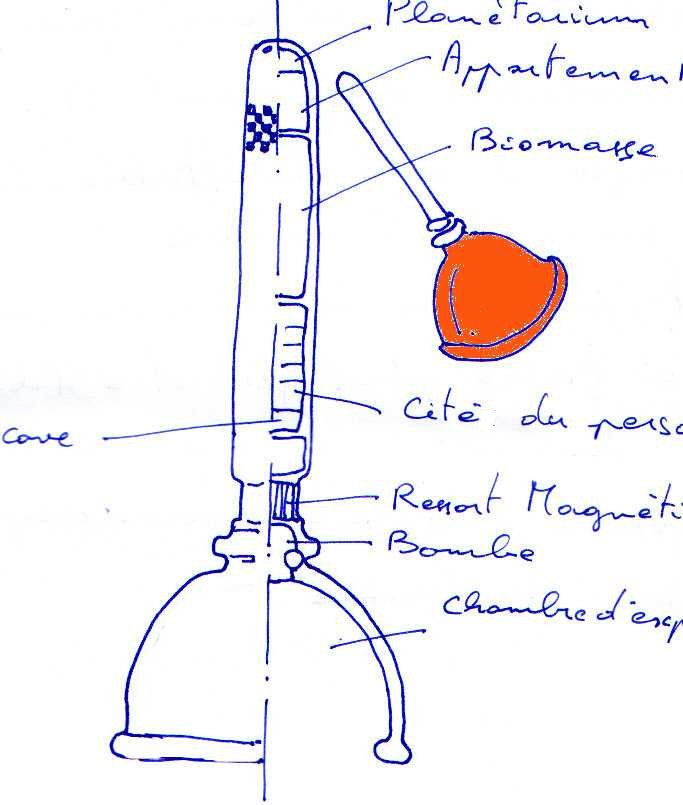 Planétarium
Appartement
Biomasse
Cité du perso
cave
Ressort Magnéti
Bombe
chambre d'exp